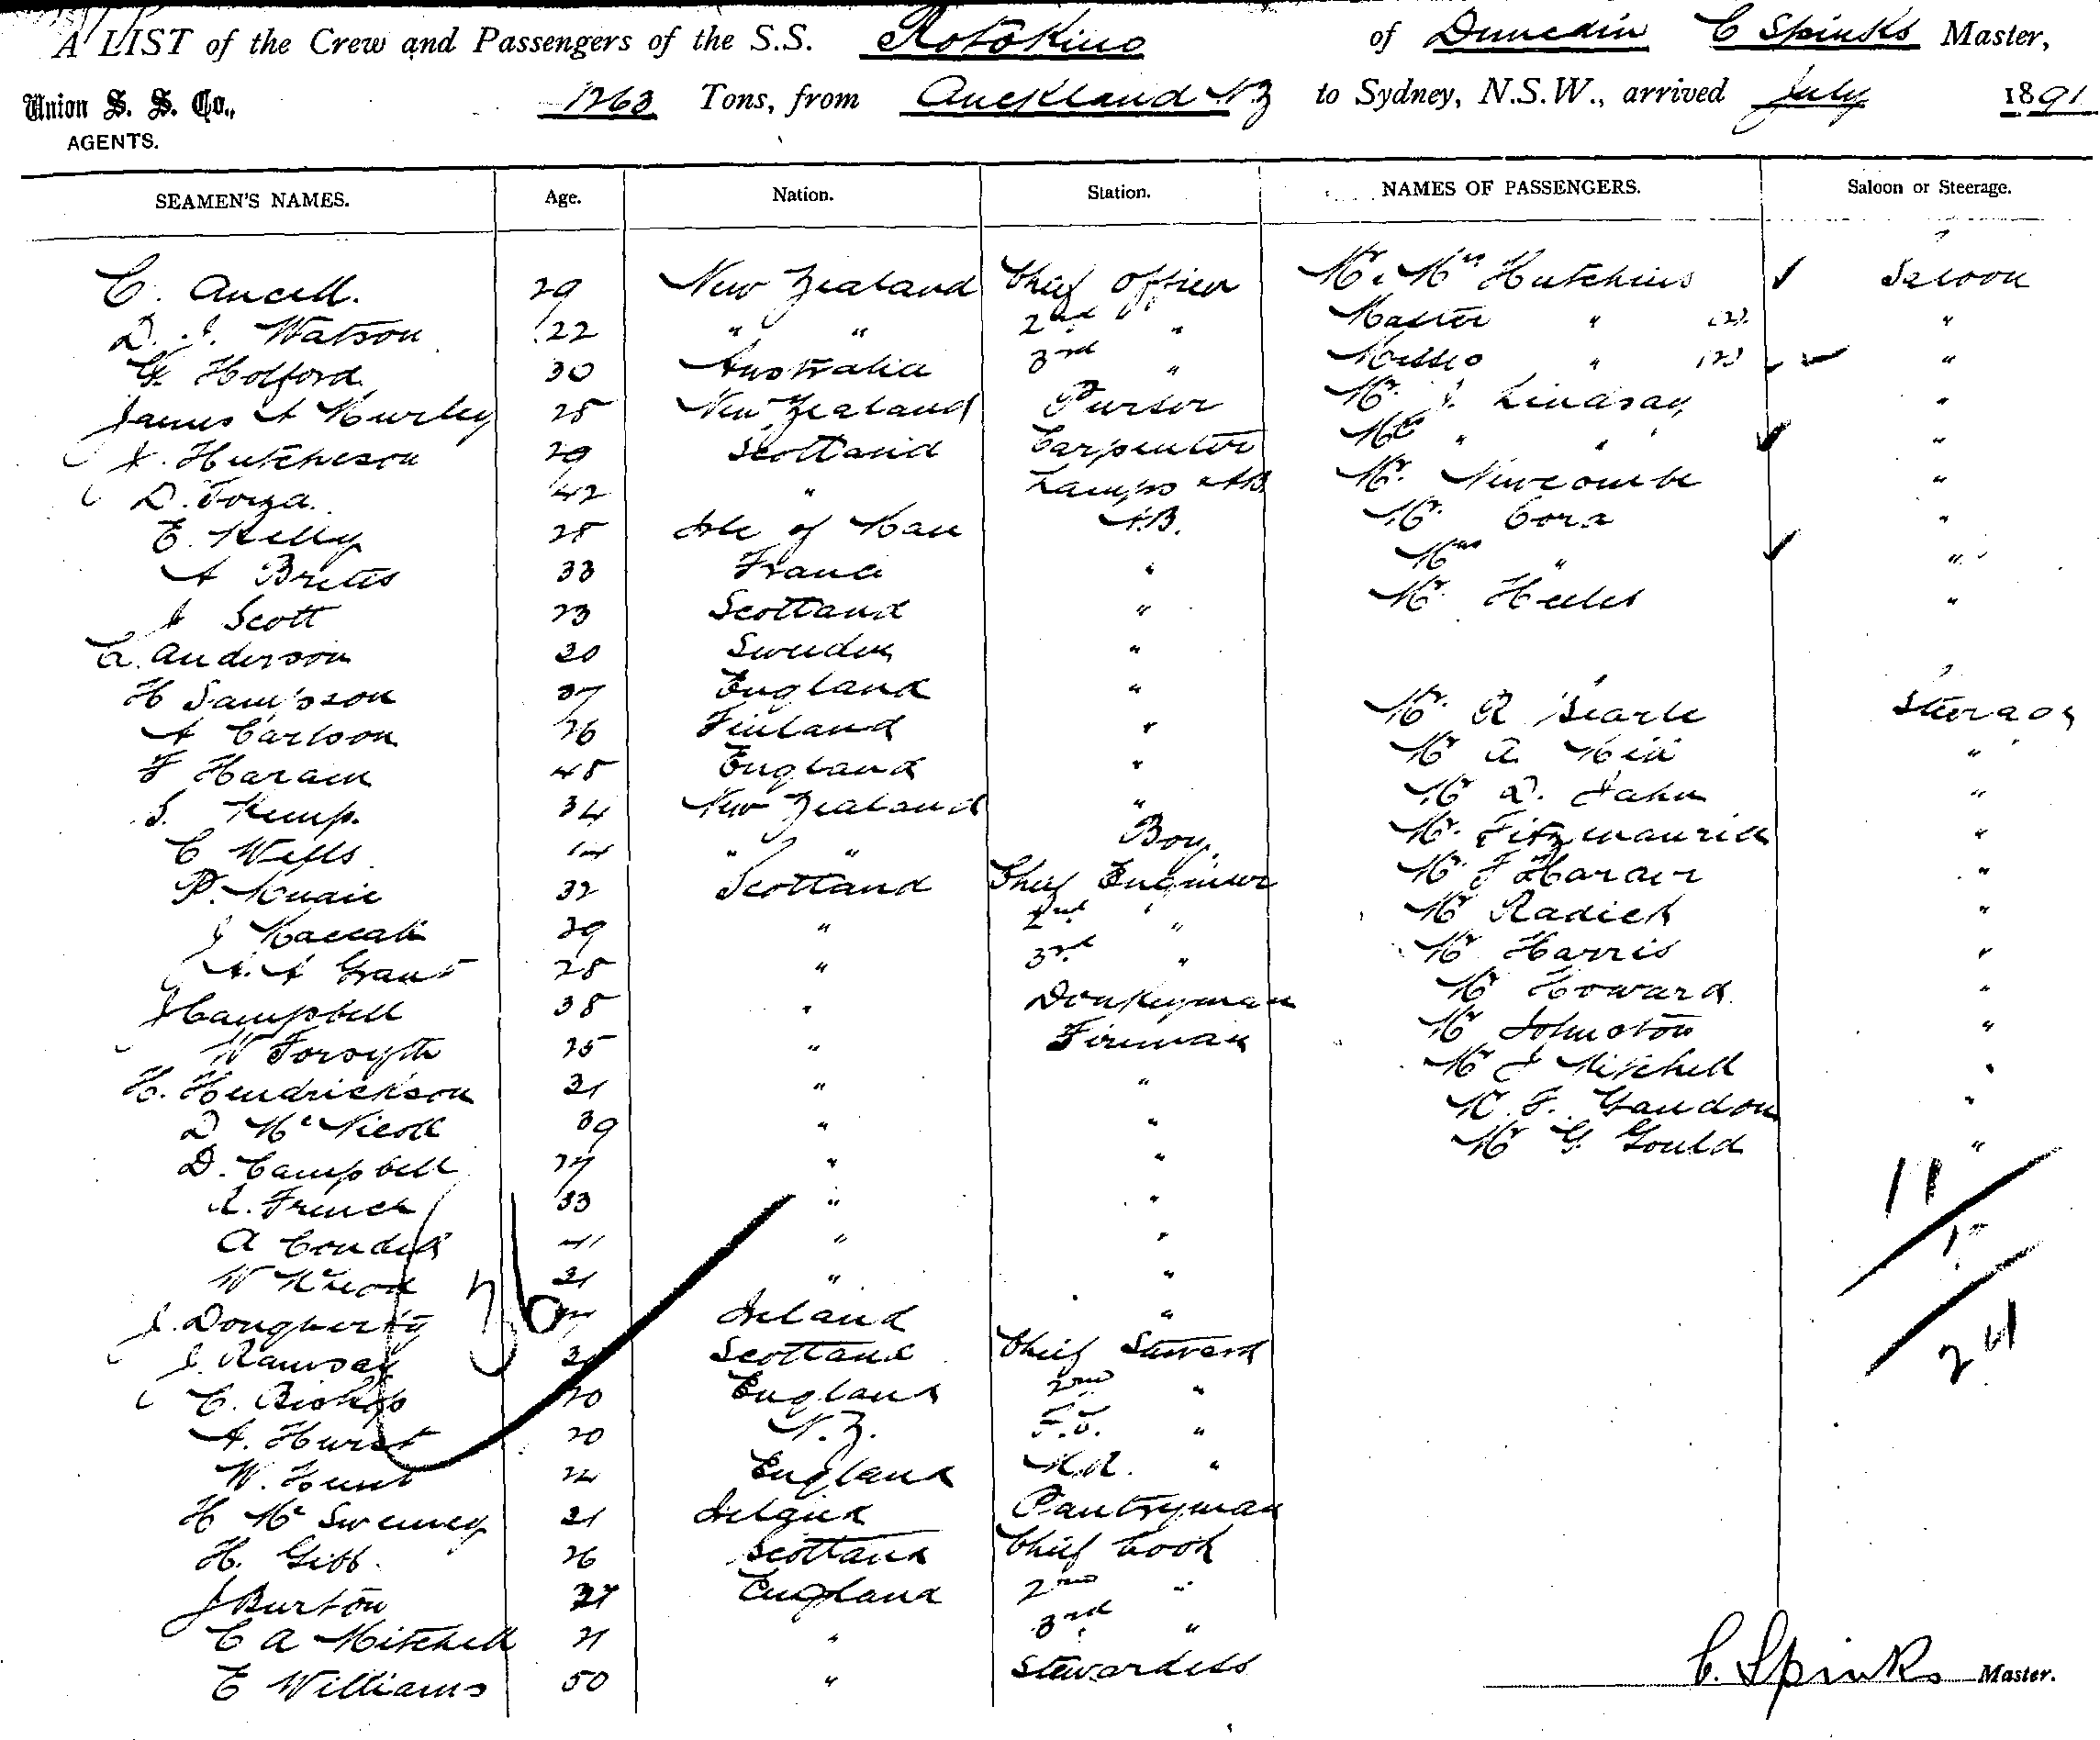 A LIST of the Crew and Passengers of the S.S. Rotokino of Dunedin C Spinks Master,
Union S. S. Co., 1263 Tons, from Auckland NZ to Sydney, N.S.W., arrived July 1891
AGENTS.
SEAMEN'S NAMES. Age. Nation. Station. NAMES OF PASSENGERS. Saloon or Steerage.
C. Ancell. 29 New Zealand Chief Officer Mr & Mrs Hutchins ✓ Saloon
D. J. Watson 22 " " 2nd " Master " (2) "
G. Holford 30 Australia 3rd " Misses " (2) ✓ "
James A Hurley 25 New Zealand Purser Mr. J. Lindsay "
J. Hutcheson 29 Scotland Carpenter " " ✓ "
D. 42 " Lamps & AB Mr. Newcombe "
E. Kelly 25 Isle of Man A.B. Mr. "
A 33 France " Mrs " ✓ "
J Scott 23 Scotland " Mr. "
Anderson 30 Sweden "
H Sampson 37 England " Mr. R Searle Steerage
A Carlson 26 Finland " Mr A "
F 45 England " Mr D. "
S. Kemp. 34 New Zealand " Mr. Fitzmaurice "
C Wells 14 " " Boy. Mr F "
P. 32 Scotland Chief Engineer Mr "
J 29 " 2nd " Mr Harris "
A. A Grant 25 " 3rd " Mr Howard "
J Campbell 38 " Donkeyman Mr Johnston "
W Forsyth 25 " Fireman Mr J Mitchell "
H. Hendrickson 31 " " Mr. F. "
D McNicoll 39 " " Mr G. Gould "
D. Campbell 27 " "
French 33 " " 11
A 41 " "
W 31 " "
J. Dougherty 36 Ireland " 24
J. Ramsay Scotland Chief Steward
C. Bishop 20 England 2nd "
A. Hurst 20 N. Z. F.C. "
W. Hunt England "
H McSweeney 21 Ireland Pantryman
H. Gibb. 26 Scotland Chief Cook
J Burton England 2nd "
C A Mitchell 21 " 3rd "
E Williams 50 " Stewardess
C. Spinks Master.